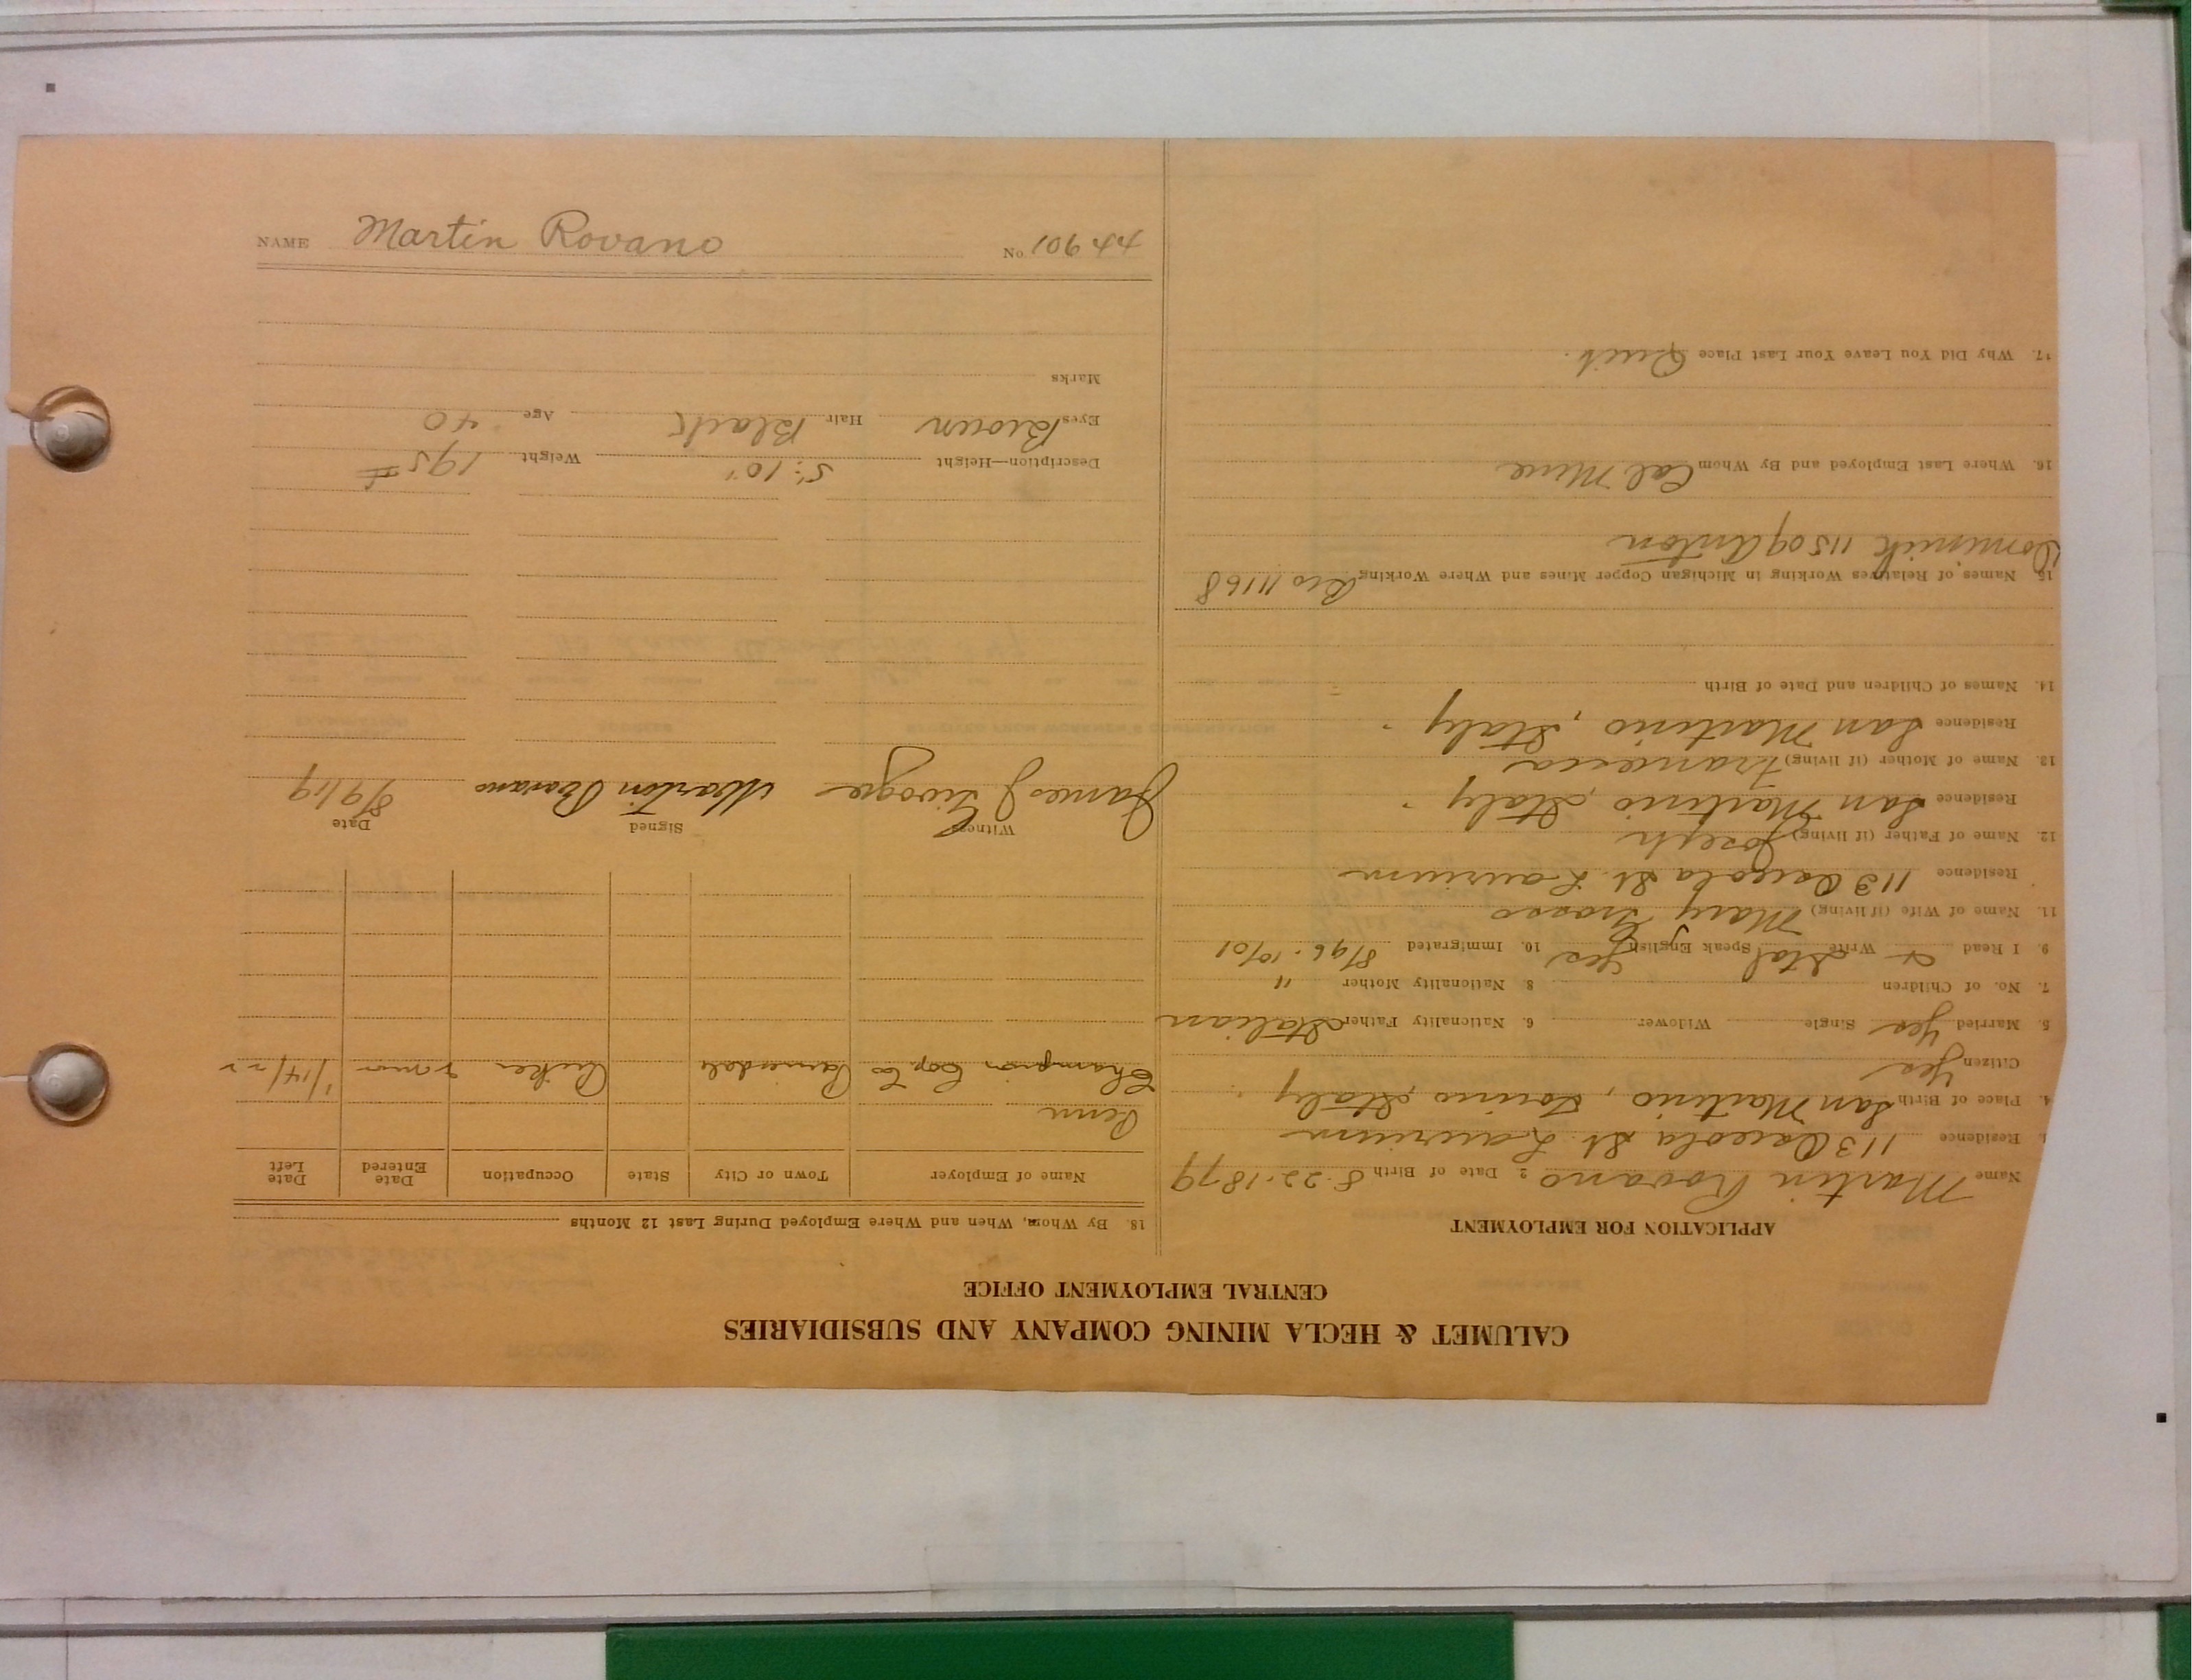 CALUMET & HECLA MINING COMPANY AND SUBSIDIARIES
CENTRAL EMPLOYMENT OFFICE
APPLICATION FOR EMPLOYMENT
Name Martin Rovano 2. Date of Birth 8-22-1879
Residence 113 Osceola St. Laurium
4. Place of Birth San Martino, Torino, Italy
Citizen Yes
5. Married Yes Single Widower 6. Nationality Father Italian
7. No. of Children 8. Nationality Mother "
9. I Read & Write Ital Speak English Yes 10. Immigrated 8/96 - 10/01
11. Name of Wife (if living) Mary Grosso
Residence 113 Osceola St. Laurium
12. Name of Father (if living) Joseph
Residence San Martino, Italy
13. Name of Mother (if living) Francesca
Residence San Martino, Italy
14. Names of Children and Date of Birth
15. Names of Relatives Working in Michigan Copper Mines and Where Working 11168
Dominick 11509 Anton
16. Where Last Employed and By Whom Cal Mine
17. Why Did You Leave Your Last Place Quit.
18. By Whom, When and Where Employed During Last 12 Months
Name of Employer Town or City State Occupation Date Entered Date Left
Penn
Champion Cop. Co Painesdale 1/14/22
Witness Signed Date
Martin Rovano 8/9/19
Description—Height 5' 10" Weight 195 #
Eyes Brown Hair Black Age 40
Marks
NAME Martin Rovano No. 901